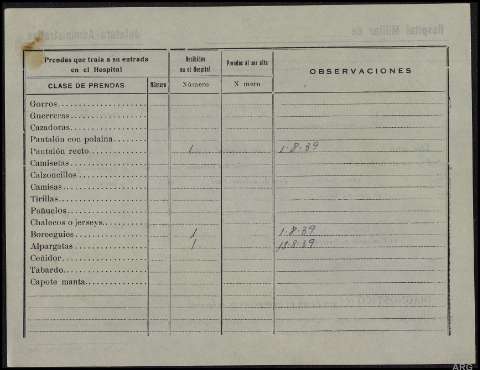 Prendas que traía a su entrada en el Hospital
Recibidas en el Hospital
Prendas al ser alta
OBSERVACIONES
CLASE DE PRENDAS
Número
Número
N mero
Gorros
Guerreras
Cazadoras
Pantalón con polaina
Pantalón recto 1 1-8-39
Camisetas
Calzoncillos
Camisas
Tirillas
Pañuelos
Chalecos o jerseys
Borceguíes 1 1-8-39
Alpargatas 1 18-8-39
Ceñidor
Tabardo
Capote manta
ARG